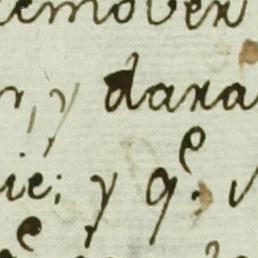 emover
r, y dara
ie; y q.e